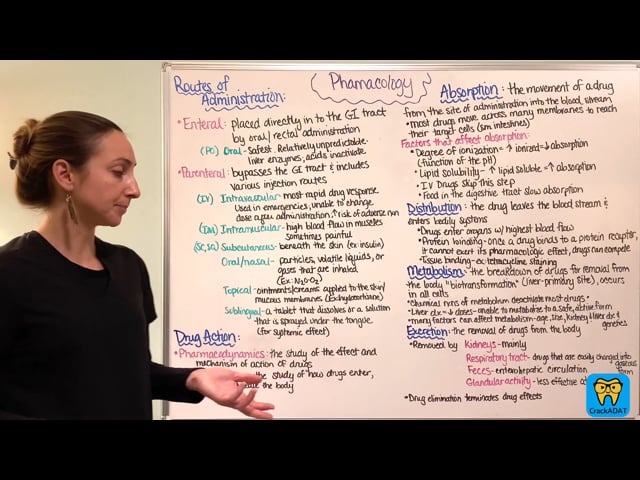 Routes of
Administration:
Phamacology
• Enteral: placed directly in to the GI tract
by oral/rectal administration
(PO) Oral - Safest. Relatively unpredictable-
liver enzymes; acids inactivate.
• Parenteral: bypasses the GI tract & includes
various injection routes
(IV) Intravascular - most rapid drug response.
Used in emergencies, unable to change
dose after administration, ↑ risk of adverse rxn
(IM) Intramuscular - high blood flow in muscles
sometimes painful
(SC, SQ) Subcutaneous - beneath the skin (ex: insulin)
Oral/nasal - particles, volatile liquids, or
gases that are inhaled
(Ex: N₂O-O₂)
Topical - ointments/creams applied to the skin/
mucous membranes
Sublingual - a tablet that dissolves or a solution
that is sprayed under the tongue
(for systemic effect)
Drug Action:
• Pharmacodynamics: the study of the effect and
mechanism of action of drugs
the study of how drugs enter,
the body
Absorption: the movement of a drug
from the site of administration into the blood stream
• most drugs move across many membranes to reach
their target cells (sm intestines)
Factors that affect absorption:
• Degree of ionization - ↑ ionized = ↓ absorption
(function of the pH)
• Lipid solubility - ↑ lipid soluble = ↑ absorption
• IV Drugs skip this step
• Food in the digestive tract slow absorption
Distribution: the drug leaves the blood stream &
enters bodily systems
• Drugs enter organs w/ highest blood flow
• Protein binding - once a drug binds to a protein receptor,
it cannot exert its pharmacologic effect, drugs can compete
• Tissue binding - ex: tetracycline staining
Metabolism: the breakdown of drugs for removal from
the body "biotransformation" (liver-primary site), occurs
in all cells
• Chemical rxns of metabolism deactivate most drugs
• Liver dx = ↓ doses - unable to metabolize to a safe, active form
• many factors can affect metabolism - age, size, kidney & liver dx &
genetics
Excretion: the removal of drugs from the body
• Removed by Kidneys - mainly
Respiratory tract - drugs that are easily changed into
gaseous
form
Feces - enterohepatic circulation
Glandular activity - less effective
• Drug elimination terminates drug effects
CrackADAT